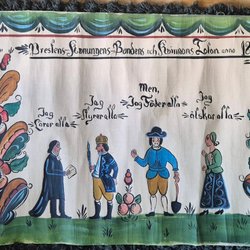 Prestens-Konungens-Bondens och Kvinnans Talan anno 18
Men,
Jag Lärer alla
Jag Styrer alla
Jag Föder alla
Jag älskar alla